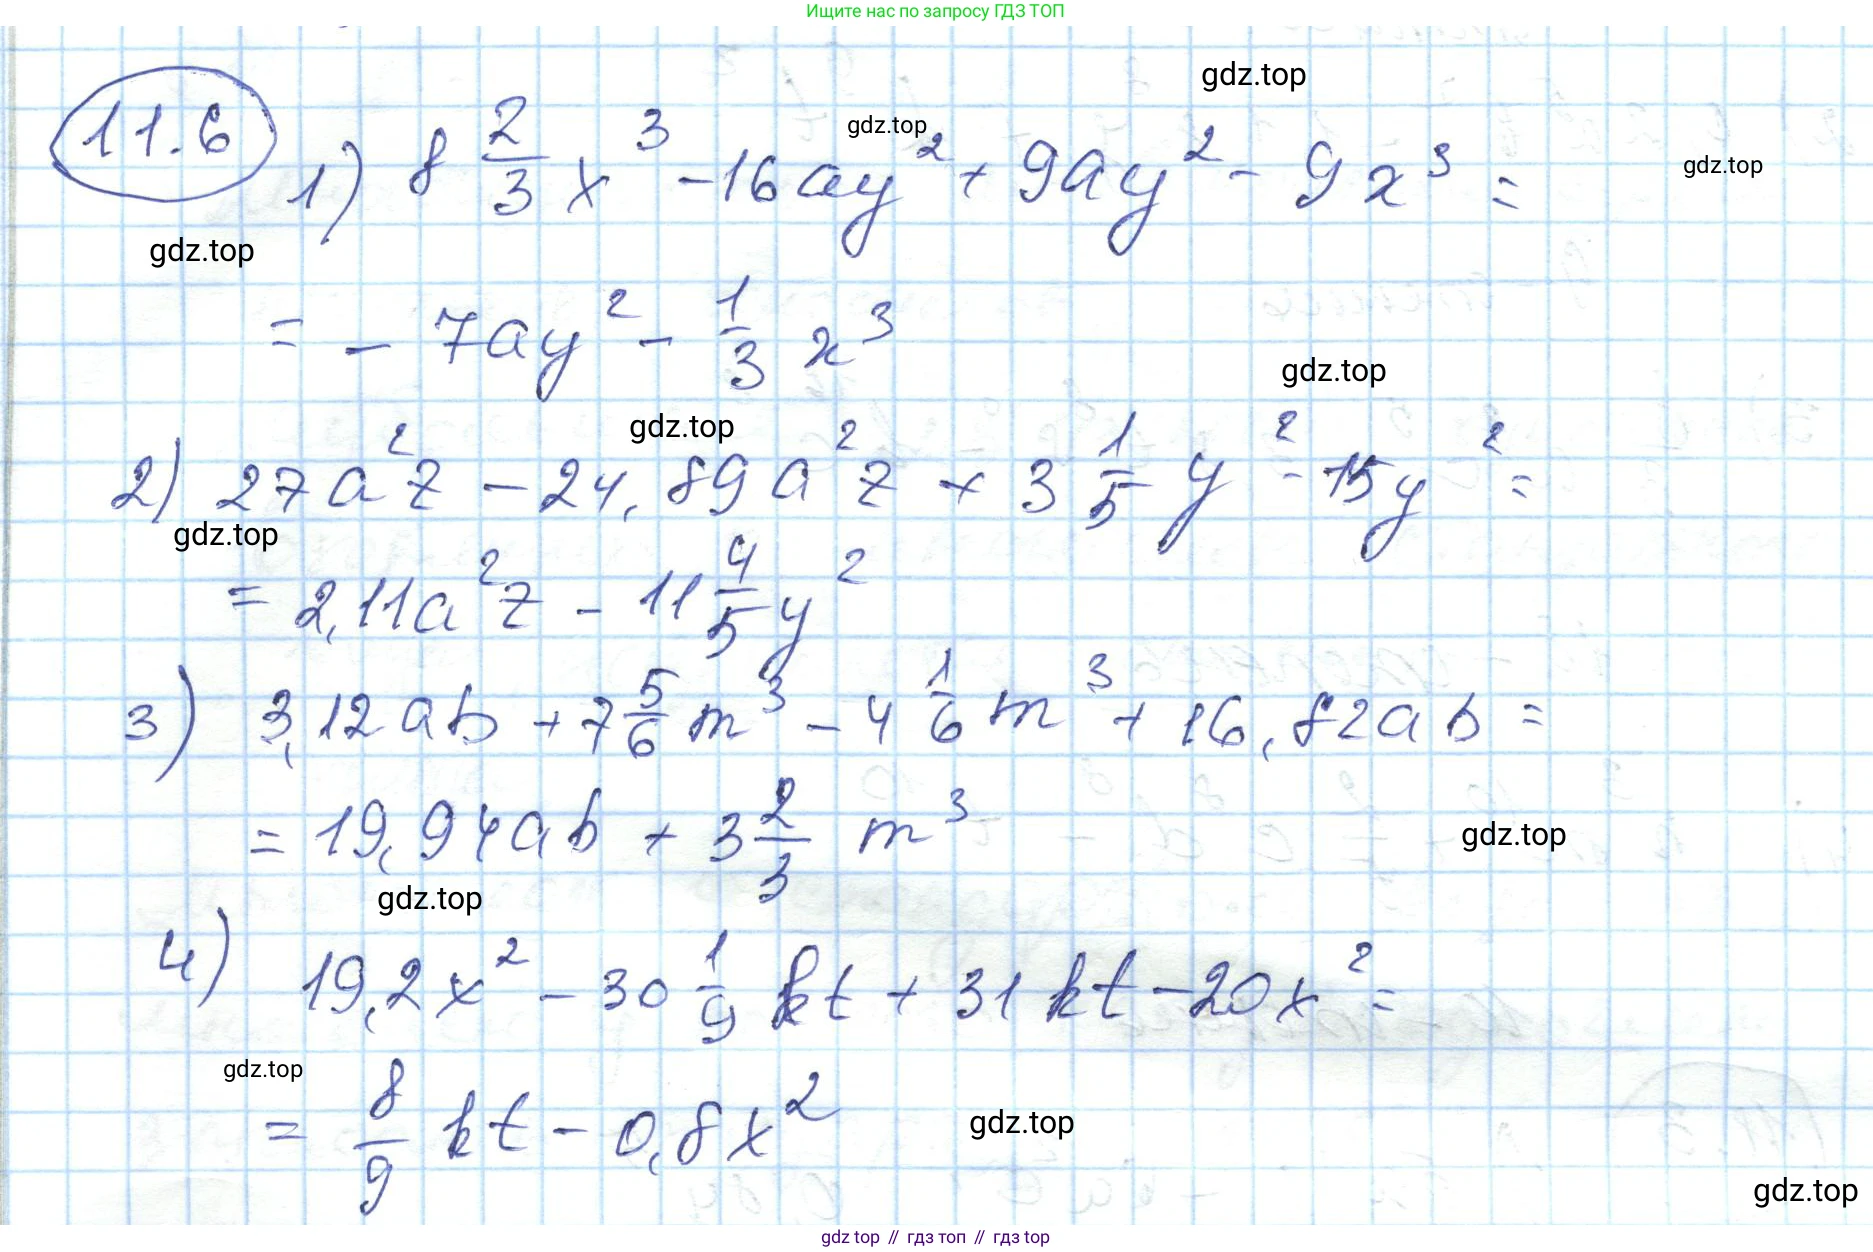 Ищите нас по запросу ГДЗ ТОП
gdz.top
11.6
1) 8 2/3 x³ - 16ay² + 9ay² - 9x³ =
gdz.top
gdz.top
gdz.top
= - 7ay² - 1/3 x³
gdz.top
gdz.top
2) 27a²z - 24,89a²z + 3 1/5 y² - 15y² =
gdz.top
= 2,11a²z - 11 4/5 y²
3) 3,12ab + 7 5/6 m³ - 4 1/6 m³ + 16,82ab =
= 19,94ab + 3 2/3 m³
gdz.top
gdz.top
4) 19,2x² - 30 1/9 kt + 31kt - 20x² =
gdz.top
= 8/9 kt - 0,8x²
gdz.top
gdz.top
gdz top // гдз топ // гдз top